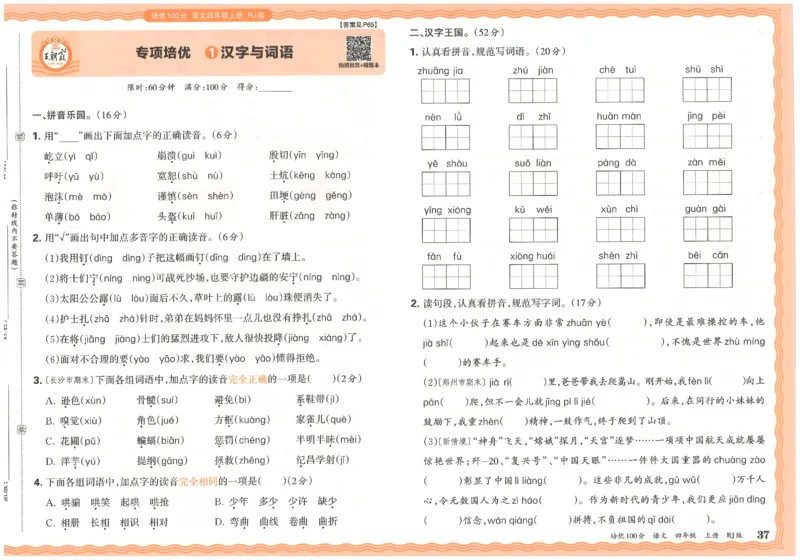 培优100分 语文四年级上册 RJ版
【答案见P65】
王朝霞
专项培优 1 汉字与词语
拍照批改+错题本
限时:60分钟 满分:100分 得分:______
一、拼音乐园。(16分)
1. 用“____”画出下面加点字的正确读音。(6分)
屹立(yì qǐ) 崩溃(guì kuì) 殷切(yīn yīng)
呼吁(yū yù) 宽恕(shù nù) 土炕(kēng kàng)
泡沫(mè mò) 谨慎(sèn shèn) 田埂(gěng gēng)
单薄(bó báo) 头盔(kuī huī) 肝脏(zāng zàng)
2. 用“√”画出句中加点多音字的正确读音。(6分)
(1)我用钉(dīng dìng)子把这幅画钉(dīng dìng)在了墙上。
(2)将士们宁(níng nìng)可战死沙场,也要守护边疆的安宁(níng nìng)。
(3)太阳公公露(lù lòu)面后不久,草叶上的露(lù lòu)珠便消失了。
(4)护士扎(zhā zhá)针时,弟弟在妈妈怀里一点儿也没有挣扎(zhā zhá)。
(5)在将(jiāng jiàng)士们的猛烈进攻下,敌人很快投降(jiàng xiáng)了。
(6)面对不合理的要(yāo yào)求,我们要(yāo yào)懂得拒绝。
3. 〔长沙市期末〕下面各组词语中,加点字的读音完全正确的一项是( )(2分)
A. 逊色(xùn) 骨髓(suí) 避免(bì) 系鞋带(jì)
B. 嗅觉(xiù) 角色(jué) 方框(kuàng) 家雀儿(què)
C. 花圃(pǔ) 蝙蝠(biān) 惩罚(chéng) 半明半昧(mèi)
D. 洋芋(yú) 提纲(gāng) 拯救(zhěng) 纪昌学射(jǐ)
4. 下面各组词语中,加点字的读音完全相同的一项是( )(2分)
A. 哄骗 哄笑 起哄 哄抢 B. 少年 多少 少许 缺少
C. 相册 长相 相识 相对 D. 弯曲 曲线 卷曲 曲折
(弥封线内不要答题)
二、汉字王国。(52分)
1. 认真看拼音,规范写词语。(20分)
zhuāng jia zhú jiàn chè tuì shū shì
nèn lǜ dì zhǐ huān màn jìng pèi
yě shòu suǒ liàn páng dà zàn měi
yīng xióng kū wěi xùn chì guàn gài
fān fù xiōng huái shèn zhì bēi cǎn
2. 读句段,认真看拼音,规范写字词。(17分)
(1)这个小伙子在赛车方面非常zhuān yè( ),即使是最难操控的车,他
jià shǐ( )起来也是dé xīn yìng shǒu( ),不愧是世界zhù míng
( )的赛车手。
(2)〔郑州市期末〕jià rì( )里,爸爸带我去爬嵩山。刚开始,我fèn lì( )向上
pān( )爬,但不一会儿就jīng pí lì jié( )。后来,在同行的小妹妹的
鼓励下,我重zhèn( )精神,一鼓作气,终于爬到了山顶。
(3)〔新情境〕“神舟”飞天,“嫦娥”探月,“天宫”逐梦……一项项中国航天成就屡屡
惊艳世界;歼-20、“复兴号”、“中国天眼”……一件件大国重器的chuàng zào
( )彰显了中国lì liàng( )。这些非凡的成就,gǔ wǔ( )万千人
心,令无数国人为之zì háo( )。作为新时代的青少年,我们更应jiān dìng
( )信念,wán qiáng( )拼搏,不负祖国的qī dài( )。
培优100分 语文 四年级 上册 RJ版 37